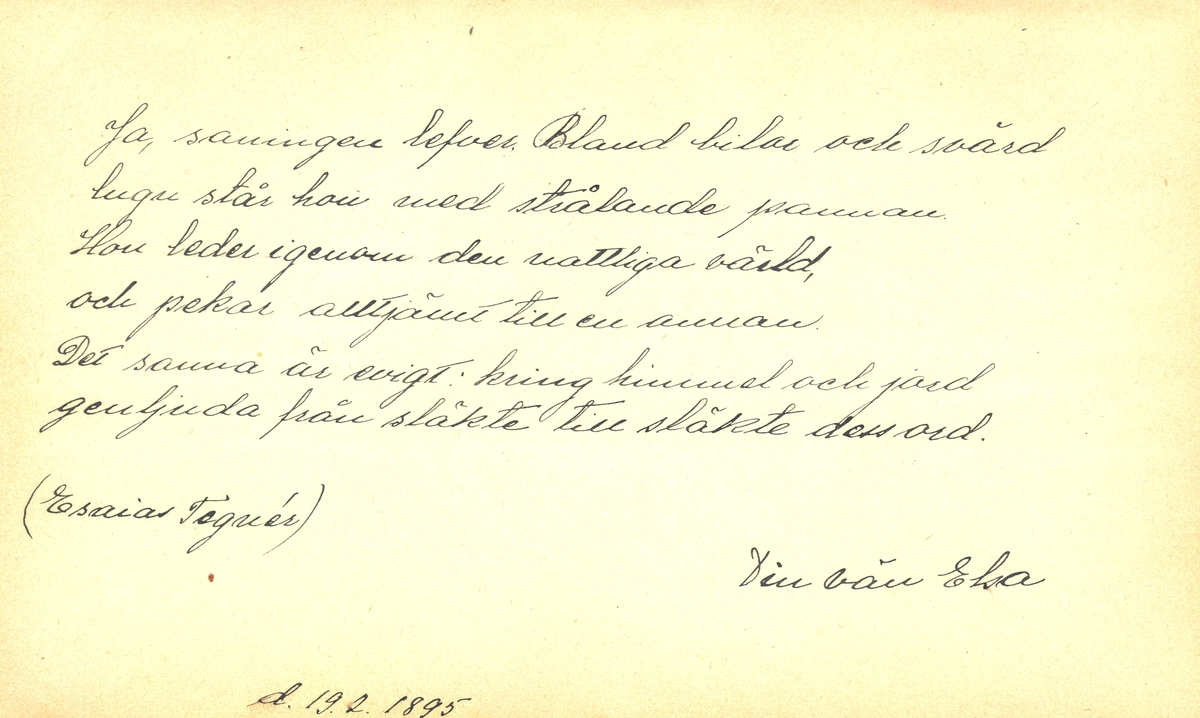 Ja, sanningen lefver. Bland bilor och svärd
lugn står hon med strålande pannan.
Hon leder igenom den nattliga värld,
och pekar alltjämt till en annan.
Det sanna är evigt: kring himmel och jord
genljuda från släkte till släkte dess ord.
(Esaias Tegnér)
Din vän Elsa
d. 19.2.1895